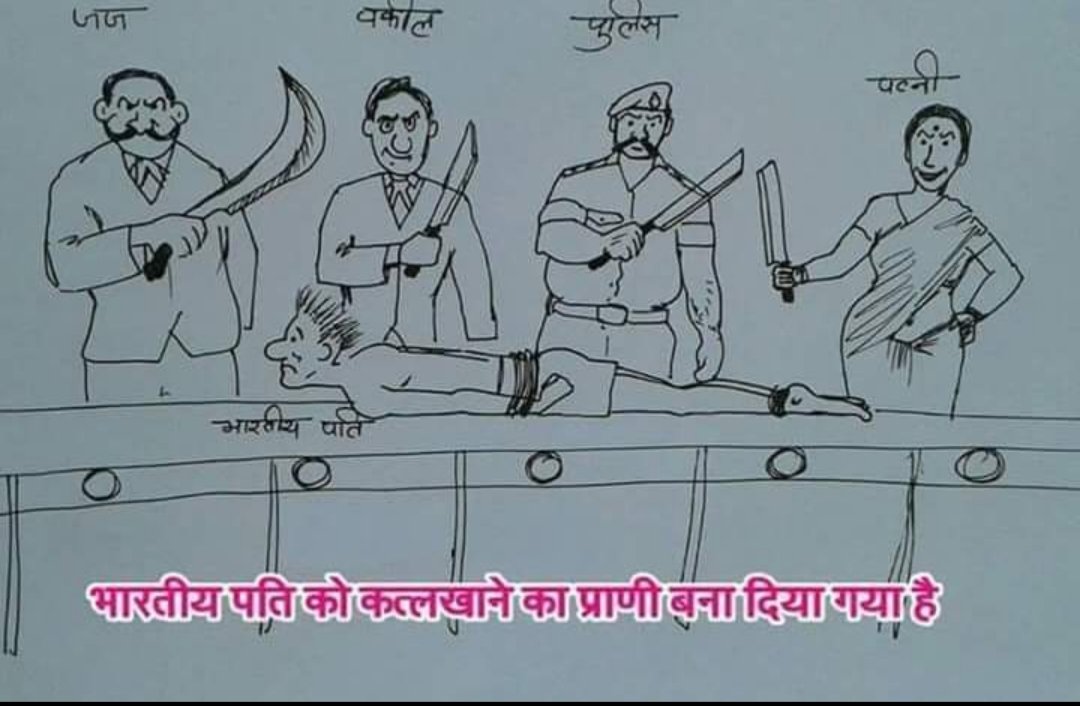 जज
वकील
पुलिस
पत्नी
भारतीय पति
भारतीय पति को कत्लखाने का प्राणी बना दिया गया है